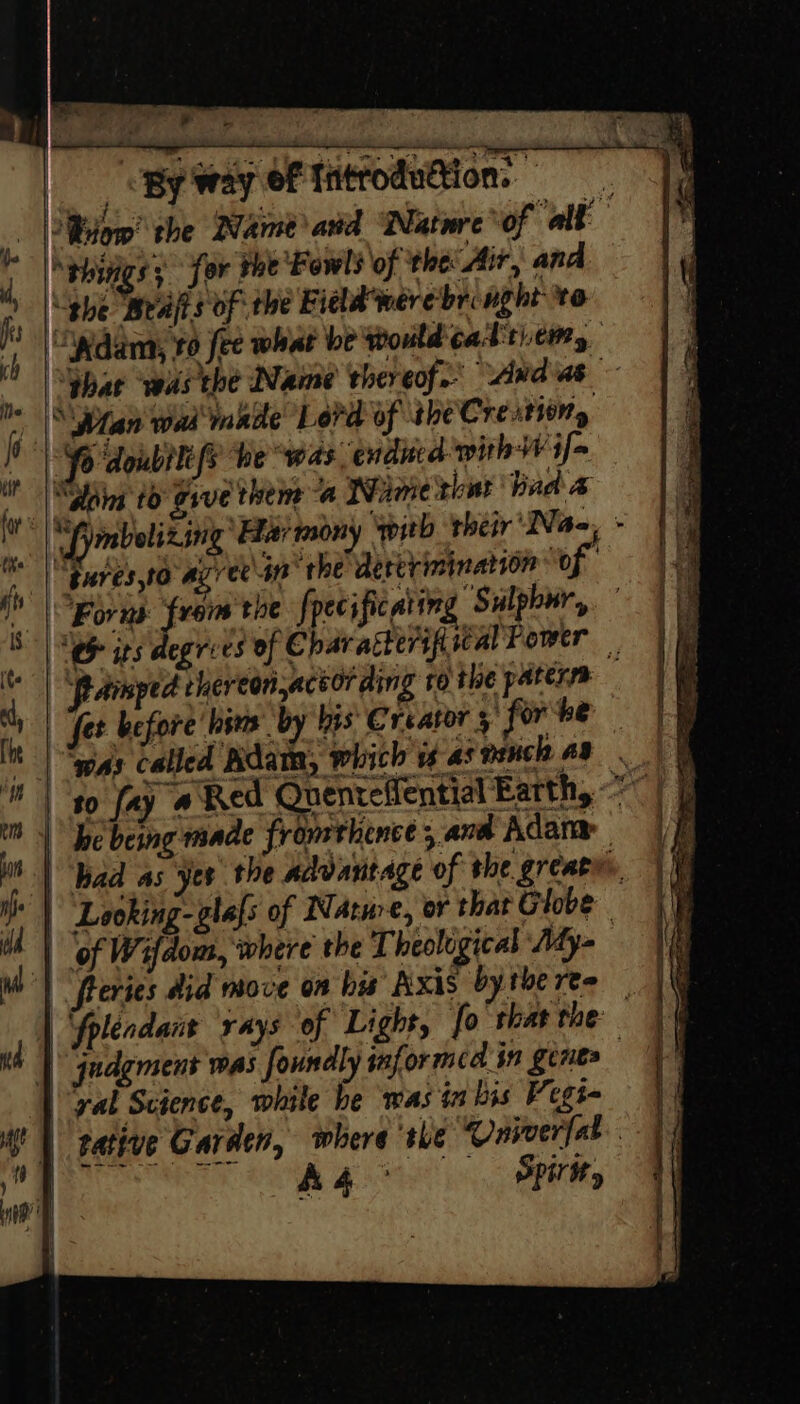 By way of Introduction.
know the Name and Nature of all
things; for the Fowls of the Air, and
the Beasts of the Field were brought to
Adam, to see what he would call them,
that was the Name thereof. And as
Man was made Lord of the Creation,
so doubtless he was endued with Wis-
dom to give them a Name that had a
symbolizing Harmony with their Na-
tures, to agree in the determination of
Forms from the specificating Sulphur,
& its degrees of Characterifical Power
stamped thereon, according to the patern
set before him by his Creator; for he
was called Adam, which is as much as
to say a Red Quentessential Earth,
he being made from thence; and Adam
had as yet the advantage of the great
Looking-glass of Nature, or that Globe
of Wisdom, where the Theological My-
steries did move on his Axis by the re-
splendant rays of Light, so that the
judgment was soundly informed in gene-
ral Science, while he was in his Vegi-
tative Garden, where the Universal
A 4 Spirit,